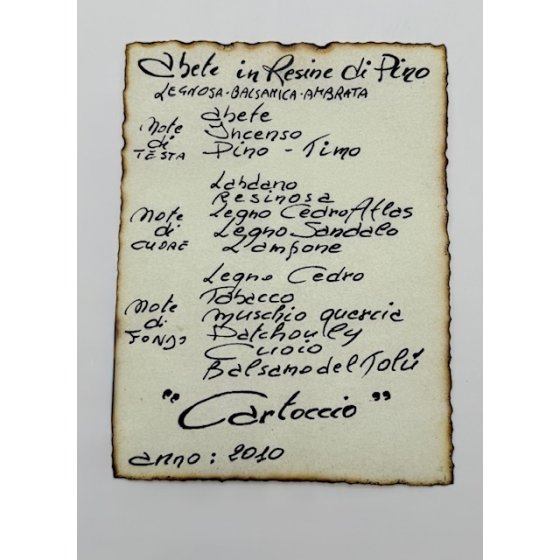 Abete in Resine di Pino
LEGNOSA-BALSAMICA-AMBRATA
Note di TESTA
abete
Incenso
Pino - Timo
Note di CUORE
Labdano
resinosa
Legno Cedro Atlas
Legno Sandalo
Lampone
Note di FONDO
Legno Cedro
Tabacco
muschio quercia
Patchouly
Cuoio
Balsamo del Tolú
"Cartoccio"
anno: 2010